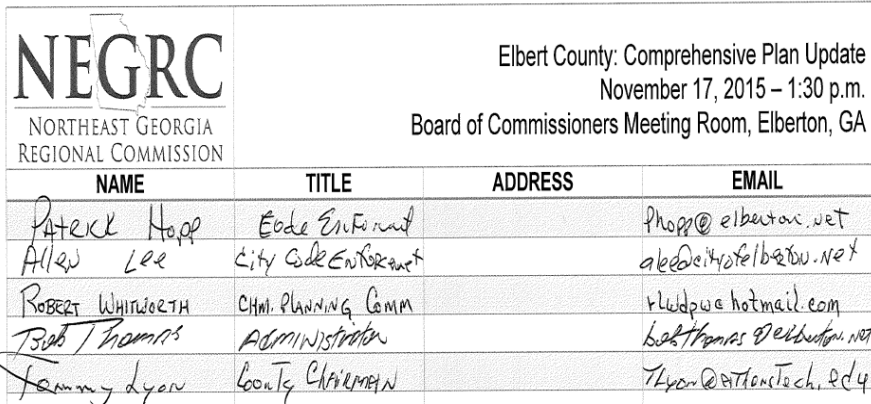 NEGRC
NORTHEAST GEORGIA
REGIONAL COMMISSION
Elbert County: Comprehensive Plan Update
November 17, 2015 – 1:30 p.m.
Board of Commissioners Meeting Room, Elberton, GA
NAME TITLE ADDRESS EMAIL
PATRICK Hopp Code Phopp@elberton.net
Allen Lee City Code Enforcement alee@cityofelberton.net
ROBERT WHITWORTH CHM. PLANNING COMM rlwdpw@hotmail.com
Bob Thomas Administrator bobthomas@elberton.net
Tammy Lyon County CHAIRMAN TLyon@AthensTech.edu